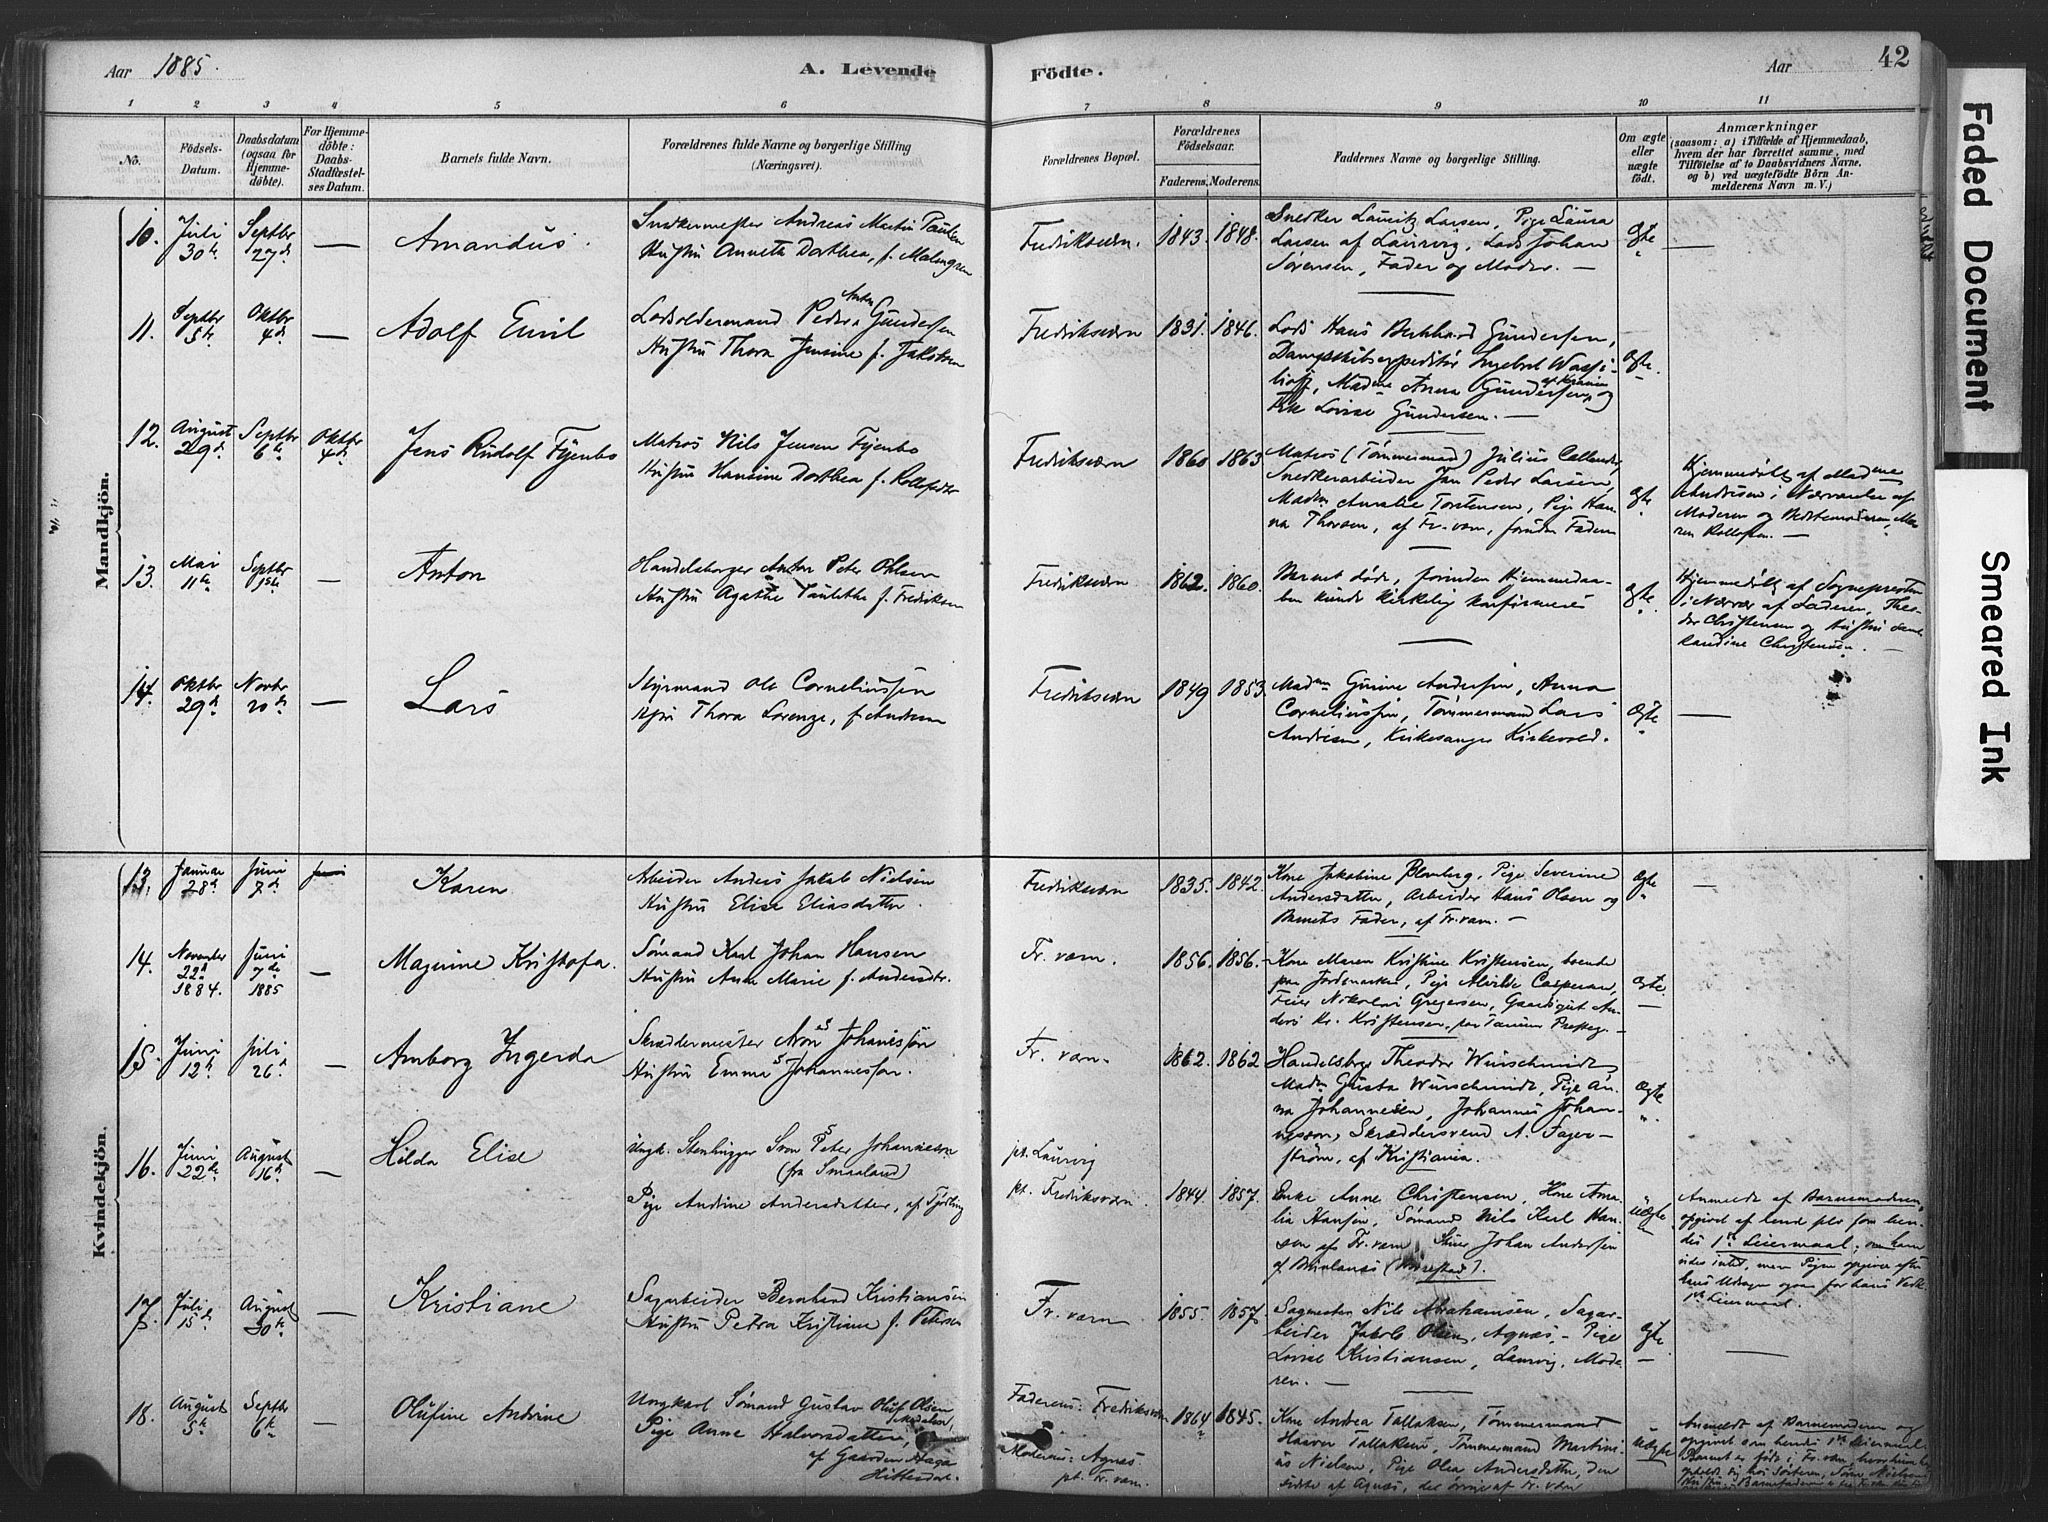 Aar 1885.
A. Levende
Födte.
Aar
42
1 2 3 4 5 6 7 8 9 10 11
No.
Födsels-
Datum.
Daabsdatum
(ogsaa for
Hjemme-
döbte).
For Hjemme-
döbte:
Daabs-
Stadfæstel-
ses Datum.
Barnets fulde Navn.
Forældrenes fulde Navne og borgerlige Stilling
(Næringsvei).
Forældrenes Bopæl.
Forældrenes
Födselsaar.
Faderens. Moderens.
Faddernes Navne og borgerlige Stilling.
Om ægte
eller
uægte
födt.
Anmærkninger
(saasom: a) i Tilfælde af Hjemmedaab,
hvem der har forrettet samme, med
Tilföielse af to Daabsvidners Navne.
og b) ved uægtefödte Börn An-
melderens Navn m. V.)
Mandkjön.
10. Juli 30te
Septbr 27de
—
Amandus.
Snedkermester Andreas Martin Paulsen
Hustru Annette Dorthea, f. Malmgren
Fredriksværn.
1843. 1848.
Snedker Lauritz Larsen, Pige Laura
Larsen af Laurvig, Lods Johan
Sørensen, Fader og Moder. —
Ægte
—
11. Septbr 5te
Oktbr 4de
—
Adolf Emil
Lodsoldermand Peder Anton Gundersen
Hustru Thora Jensine f. Jakobsen
Fredriksværn
1831. 1846.
Lods Hans Bernhard Gundersen,
Dampskibsexpeditør Ingebret Wassi-
lioff, Madme Anna Gundersen, og
Frk Lovise Gundersen. —
Ægte.
12. August 29de
Septbr 6te
Oktbr 4de
Jens Rudolf Fyenbo
Matros Nils Jensen Fyenbo
Hustru Hansine Dorthea f. Rollefsdtr
Fredriksværn
1860 1863
Matros (Tømmermand) Julius
Snedkerarbeider Jan Peder Larsen,
Madm Amalie Torstensen, Pige Han-
na Thorsen, af Fr.værn, foruden Faderen
Ægte
Hjemmedøbt af Madme
Andersen i Nærværelse af
Moderen og Bedstemoderen, Ma-
ren Rollefsen. —
13. Mai 11te
Septbr 1ste
—
Anton
Handelsborger Anton Peter Ohlsen
Hustru Agathe Paulette f. Fredriksen
Fredriksværn
1862. 1860.
Barnet døde, forinden Hjemmedaa-
ben kunde kirkelig konfirmeres
Ægte
Hjemmedøbt af Sognepresten
i Nærvær af Faderen, Theo-
dor Christensen og Hustru
Christensen. —
14. Oktbr 29de
Novbr 20de
—
Lars
Styrmand Ole Corneliussen
Hstru Thora Lorenze, f. Andersen
Fredriksværn
1849 1853.
Madme Gurine Andersen, Anna
Corneliussen, Tømmermand Lars
Andersen, Kirkesanger Kirkevold.
Ægte
—
Kvindekjön.
13. Januar 28de
Juni 7de
Karen
Arbeider Anders Jakob Nielsen
Hustru Elise Eliasdatter.
Fredriksværn
1835. 1842.
Kone Jakobine Blomberg, Pige Severine
Andersdatter, Arbeider Hans Olsen og
Barnets Fader, af Fr.værn. —
Ægte
—
14. November 22de 1884.
Juni 7de 1885
—
Magnine Kristofa.
Sømand Karl Johan Hansen
Hustru Anne Marie f. Andersdtr.
Fr. værn.
1856. 1856.
Kone Maren Kristine Kristensen, boende
paa Jordemarken, Pige Alvilde Caspersen,
Feier Nikolai Gregersen, Gaardgut An-
ders Kr. Kristensen, paa Tanum Præsteg. —
Ægte.
15. Juni 12te
Juli 26de
—
Amborg Ingerda
Skræddermester Aron Johannesson
Hustru Emma Johannesson.
Fr. værn.
1862. 1862
Handelsbgr Theodor Wurschmidt,
Madm Gusta Wurschmidt, Pige An-
na Johannesen, Johannes Johan-
nesson, Skræddersvend A. Fager-
strøm, af Kristiania.
Ægte
16. Juni 22de
August 16de
—
Hilda Elise
Ungk. Stenhugger Sven Peter Johannesson
(fra Smaaland)
Pige Andrine Andersdatter, af Tjødling
pt. Laurvig
pt. Fredriksværn.
1844. 1857.
Enke Anne Christensen, Kone Ama-
lia Hansen, Sømand Nils Karl Han-
sen af Fr.værn Johan Andersen
Uægte
Anmeldt af Barnemoderen,
opgivet af
des 1ste Leiermaal;
1ste Leiermaal.
17. Juli 15de
August 30te
—
Kristiane
Sagarbeider Bernhard Kristiansen
Hustru Petra Kristiane f. Petersen
Fr. værn
1855. 1857.
Sagmester Nils Abrahamsen, Sagar-
beider Jakob Olsen, Agnæs, — Pige
Lovise Kristiansen, Laurvig, Mode-
ren. —
Ægte
—
18. August 5te
Septbr 6te
—
Olufine Andrine
Ungkarl Sømand Gustav Oluf Olsen
Pige Anne Halvorsdatter,
af Gaarden Haga
Hitterdal.
Faderens: Fredriksværn
Moderens: Agnæs
pt. Fr. værn.
1864 1845.
Kone Andrea Tallaksen, Tømmermand
Tallaksen, Tømmermand Martini-
us Nielsen, Pige Olea Andersdatter, den
sidste af Agnæs, det øvrige af Fr. værn
Uægte
Anmeldt af Barnemoderen og
opgivet som hendes 1ste Leiermaal.
Barnet er født i Fr. værn,
Faded Document
Smeared Ink